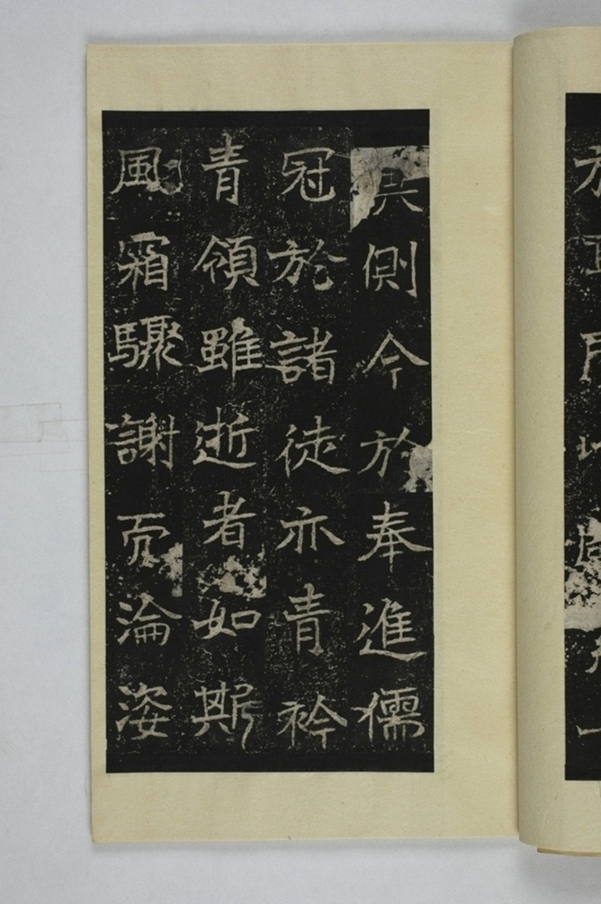 其側今於奉進儒
冠於諸徒亦青衿
青領雖逝者如斯
風霜驟謝而淪姿